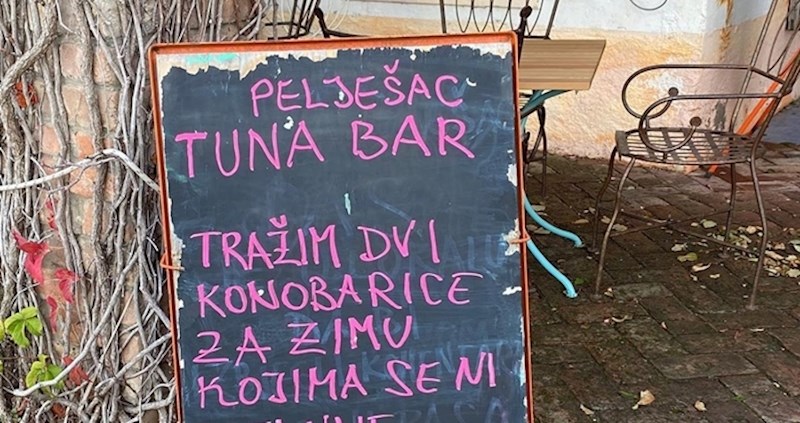 PELJEŠAC
TUNA BAR
TRAŽIM DVI
KONOBARICE
ZA ZIMU
KOJIMA SE NI